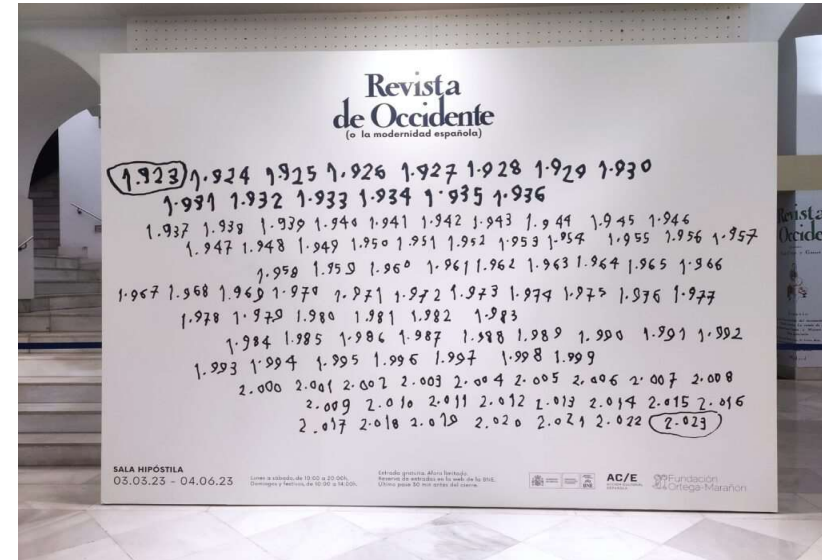 Revista
de Occidente
(o la modernidad española)
1.923 1.924 1.925 1.926 1.927 1.928 1.929 1.930
1.931 1.932 1.933 1.934 1.935 1.936
1.937 1.938 1.939 1.940 1.941 1.942 1.943 1.944 1.945 1.946
1.947 1.948 1.949 1.950 1.951 1.952 1.953 1.954 1.955 1.956 1.957
1.958 1.959 1.960 1.961 1.962 1.963 1.964 1.965 1.966
1.967 1.968 1.969 1.970 1.971 1.972 1.973 1.974 1.975 1.976 1.977
1.978 1.979 1.980 1.981 1.982 1.983
1.984 1.985 1.986 1.987 1.988 1.989 1.990 1.991 1.992
1.993 1.994 1.995 1.996 1.997 1.998 1.999
2.000 2.001 2.002 2.003 2.004 2.005 2.006 2.007 2.008
2.009 2.010 2.011 2.012 2.013 2.014 2.015 2.016
2.017 2.018 2.019 2.020 2.021 2.022 2.023
SALA HIPÓSTILA
03.03.23 – 04.06.23
Lunes a sábado, de 10:00 a 20:00h.
Domingos y festivos, de 10:00 a 14:00h.
Entrada gratuita. Aforo limitado.
Reserva de entradas en la web de la BNE.
Último pase 30 min antes del cierre.
BNE
AC/E
Fundación
Ortega-Marañón
Revista
Occide